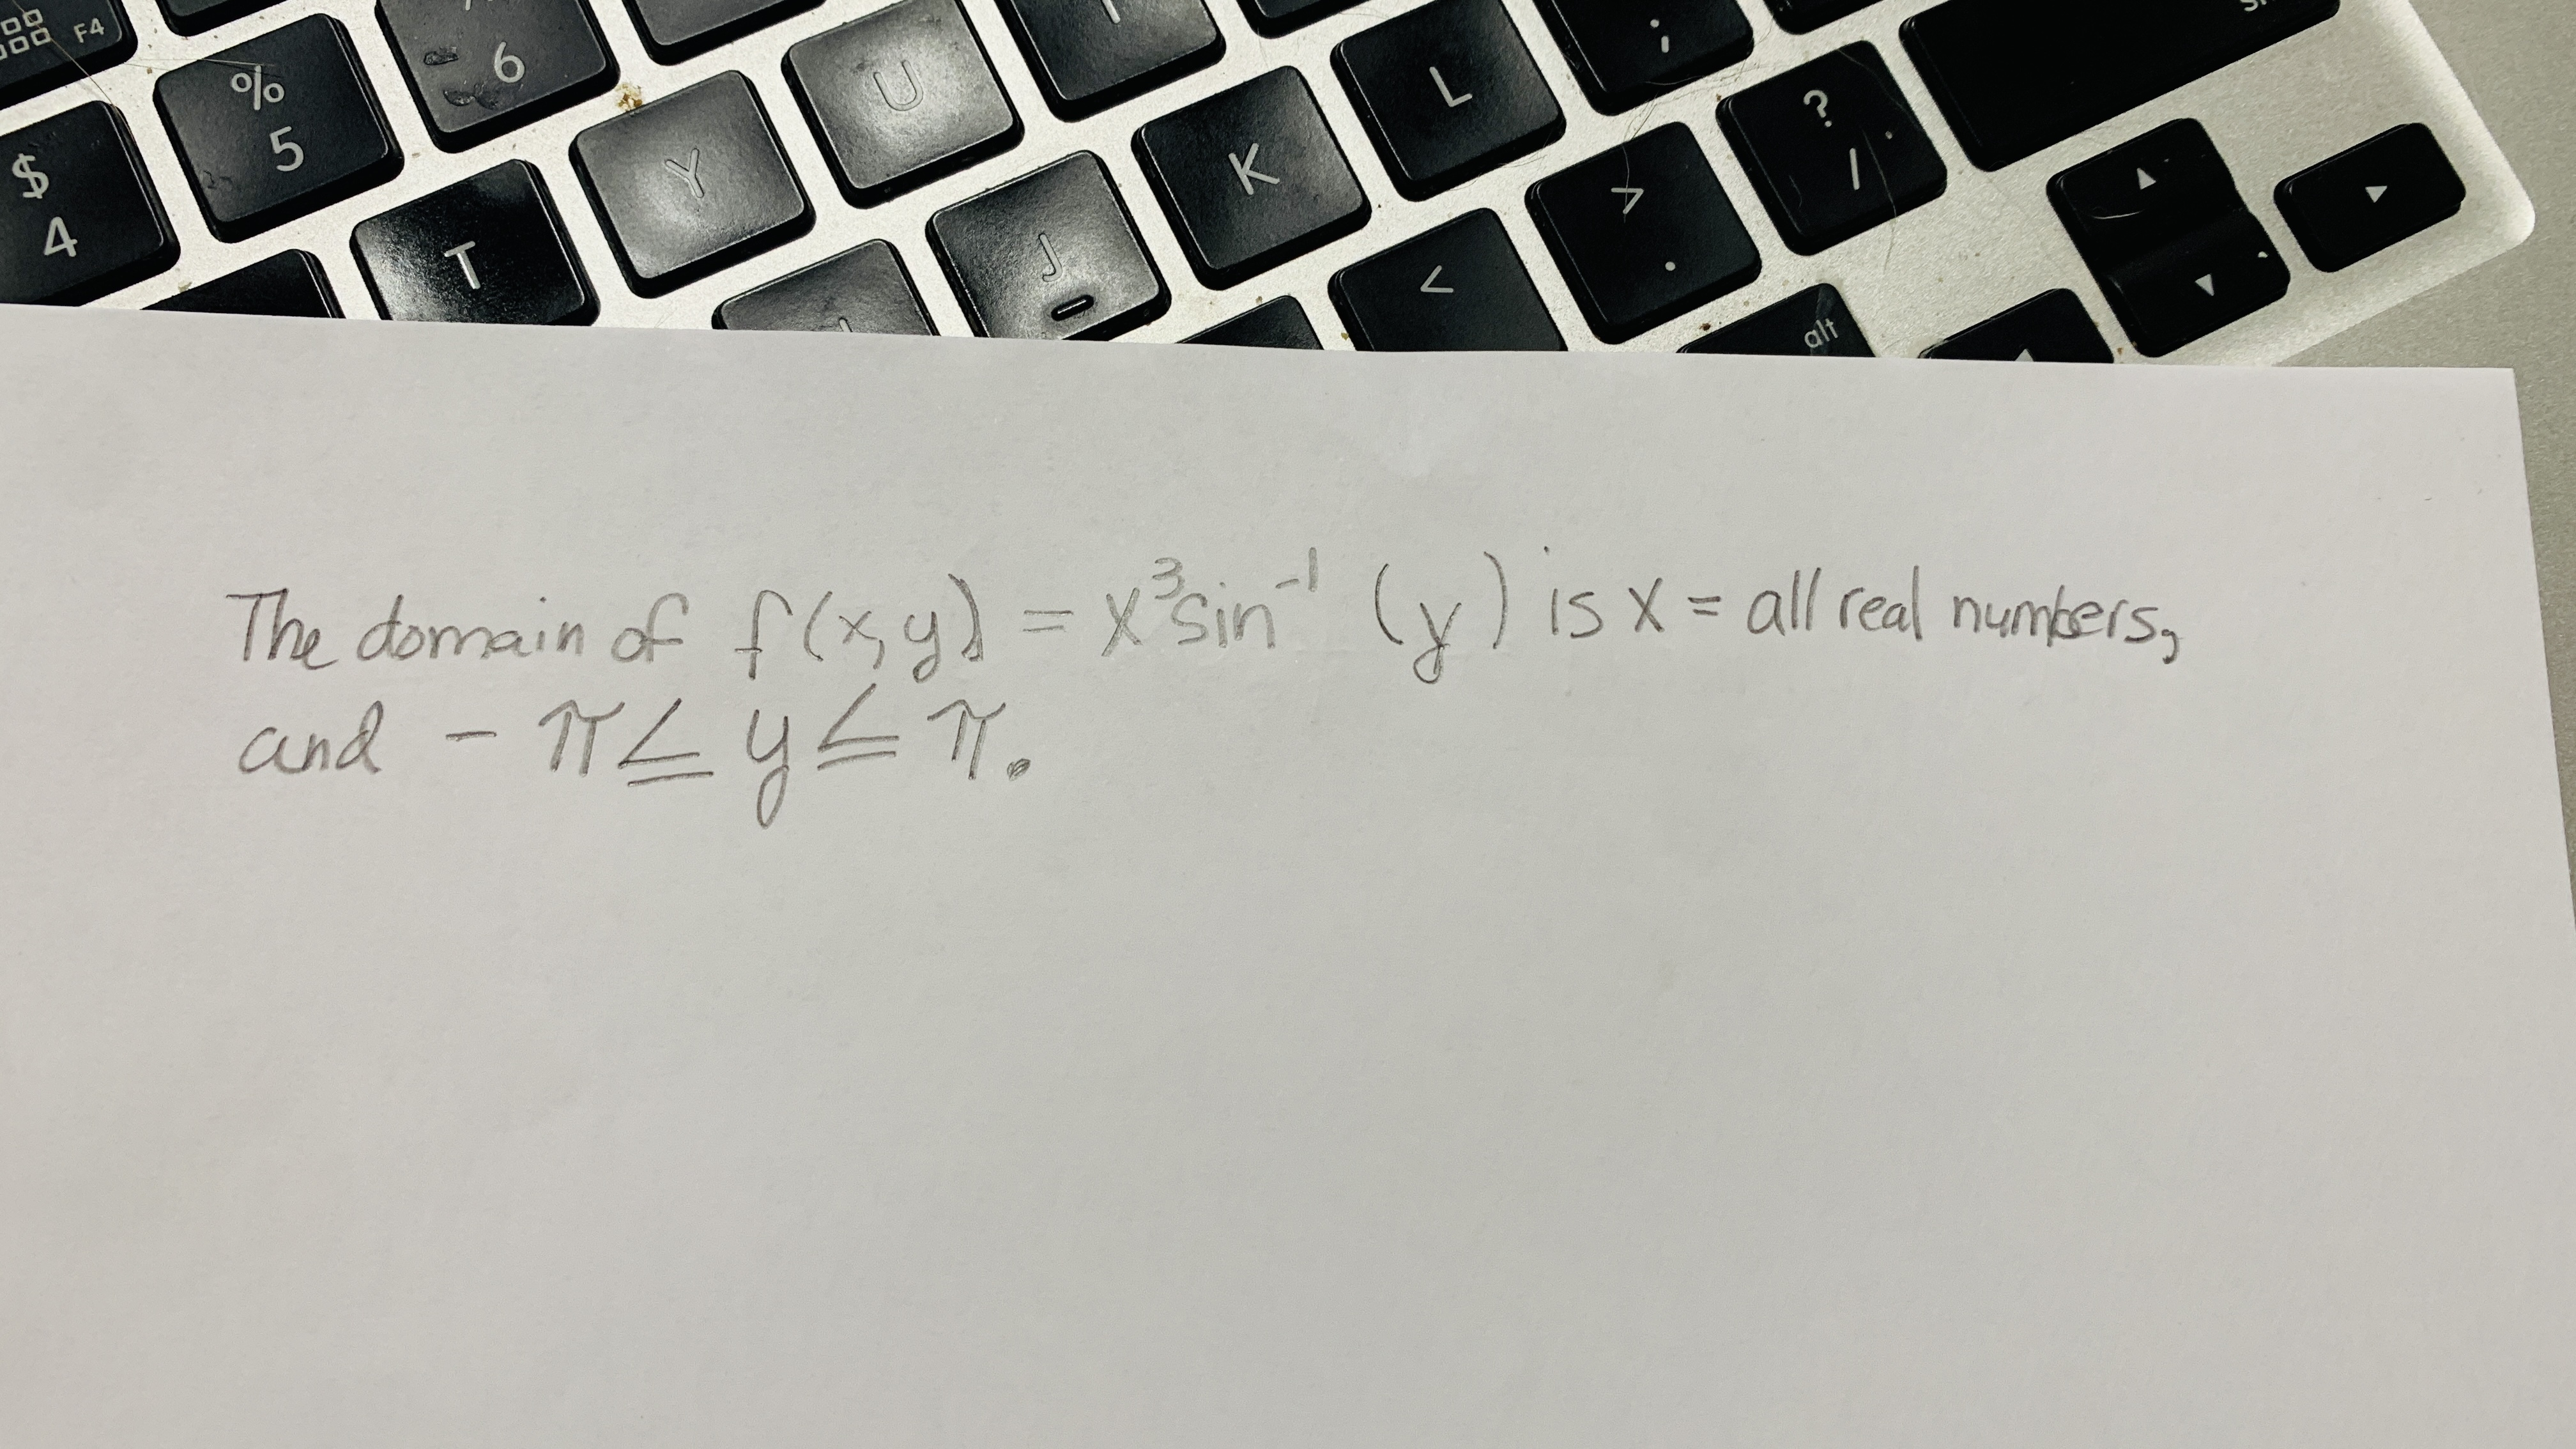 F4
% 5
6
$ 4
T
Y
U
J
K
L
;
<
> .
? /
alt
The domain of f(x,y) = x³sin⁻¹ (y) is x = all real numbers,
and - π ≤ y ≤ π.